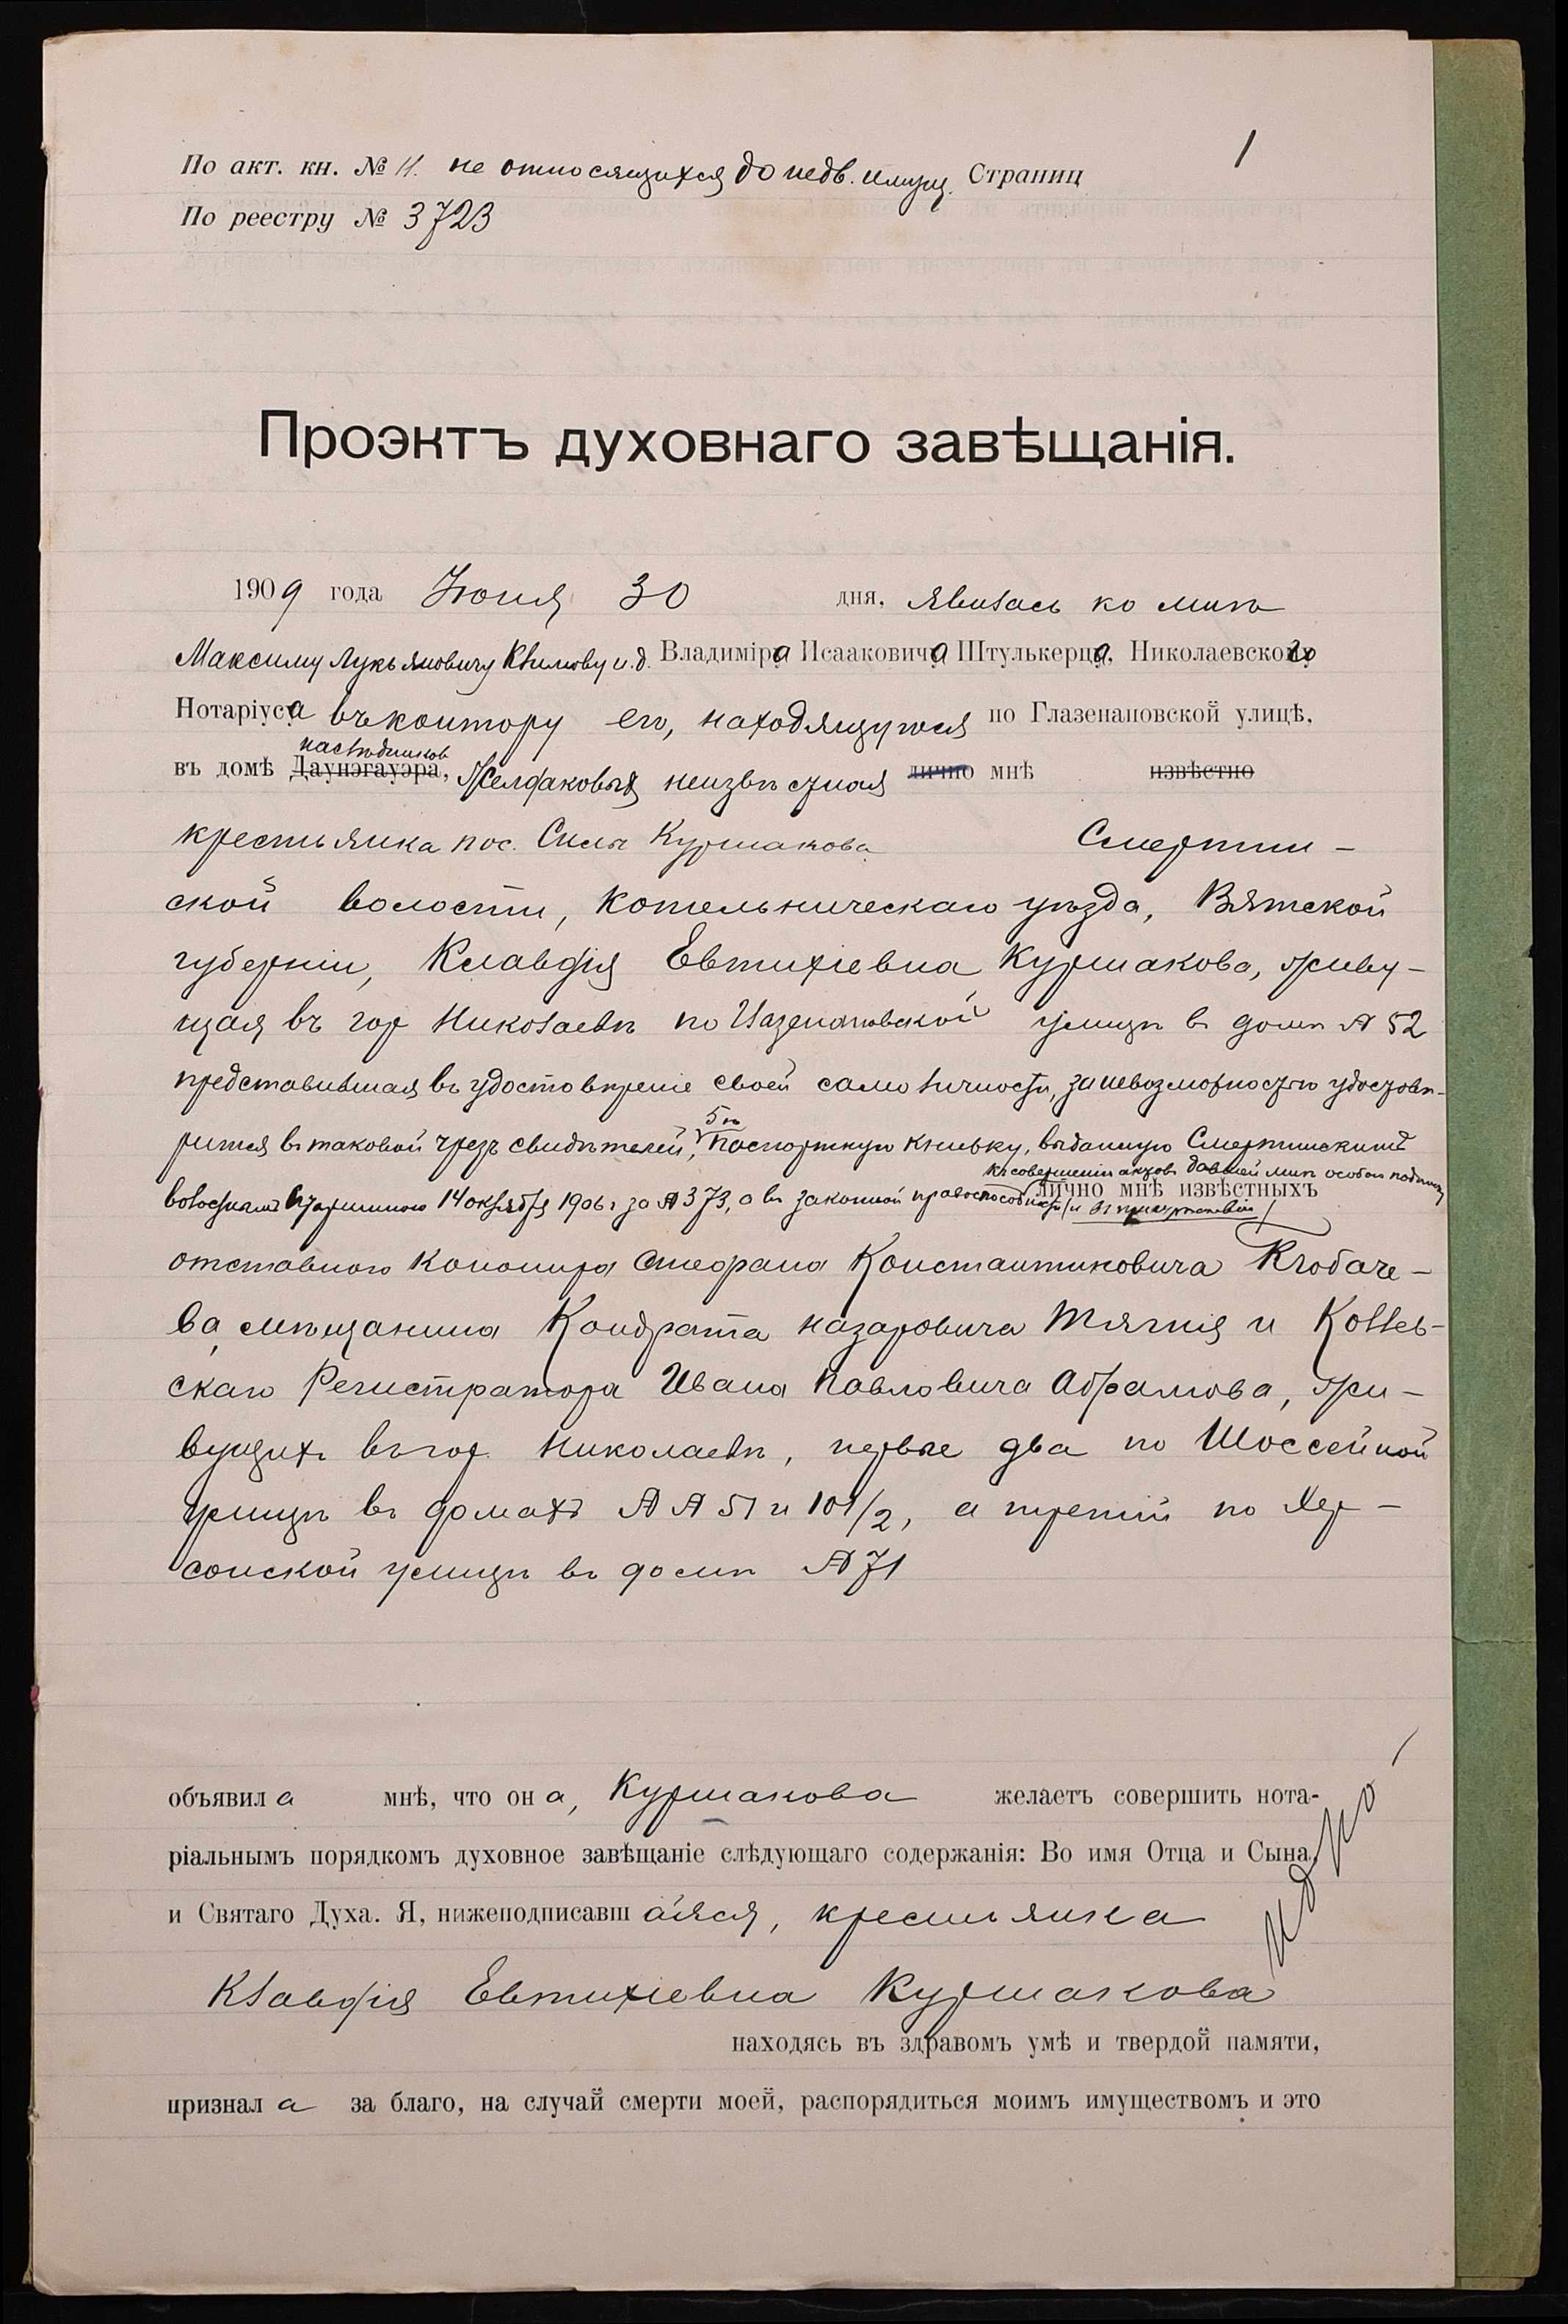 1
По акт. кн. № 11. не относящихся до недв. имущ. Страниц
По реестру № 3723
Проэктъ духовнаго завѣщанія.
1909 года Іюня 30 дня, явилась ко мнѣ
Максиму Лукьяновичу и. д. Владиміра Исааковича Штулькерца, Николаевскаго
Нотаріуса въ контору его, находящуюся по Глазенаповской улицѣ,
наслѣдников
въ домѣ Даунэгауэра, неизвѣстная лично мнѣ извѣстно
крестьянка пос. Силы Куршакова Смертин-
ской волости, Котельническаго уѣзда, Вятской
губерніи, Клавдія Евтихіевна Куршакова, живу-
щая въ гор Николаевѣ по Глазенаповской улицѣ в домѣ № 52
представившая въ удостовѣреніе своей самоличности, за невозможностью удостовѣ-
5ти
рится въ таковой чрезъ свидѣтелей, паспортную книжку, выданную Смертинскимъ
къ совершенію актовъ давшей мнѣ особою подписку
волостнымъ Правленіемъ 14 октября 1906 г за № 373, а въ законной правоспособности и въ присутствіи лично мнѣ извѣстныхъ
отставного Стефана Константиновича Клобаче-
ва, мѣщанина Кондрата Назаровича Тягнія и Коллеж-
скаго Регистратора Ивана Павловича Абрамова, жи-
вущих въ гор. Николаевѣ, первые два по Шоссейной
улицѣ въ домахъ № № 51 и 101/2, а третій по Хер-
сонской улицѣ въ домѣ № 71
объявила мнѣ, что она, Куршакова желаетъ совершить нота-
ріальнымъ порядкомъ духовное завѣщаніе слѣдующаго содержанія: Во имя Отца и Сына
и Святаго Духа. Я, нижеподписавшаяся, крестьянка
Клавдія Евтихіевна Куршакова
находясь въ здравомъ умѣ и твердой памяти,
признала за благо, на случай смерти моей, распорядиться моимъ имуществомъ и это